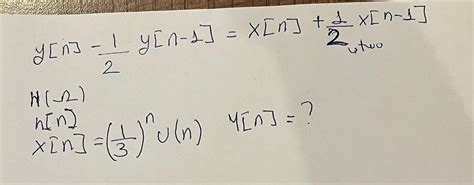 y[n] - 1/2 y[n-1] = x[n] + 1/2 x[n-1]
two
H(Ω)
h[n]
x[n] = (1/3)^n u(n) y[n] = ?